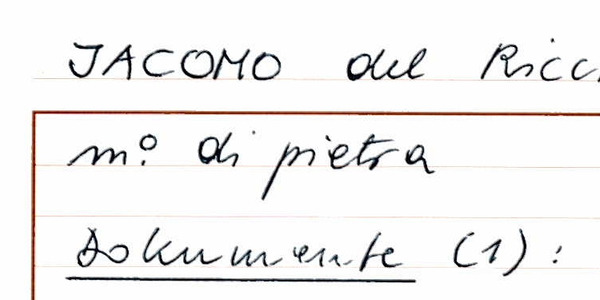 JACOMO del Ricc
m.º di pietra
Dokumente (1):